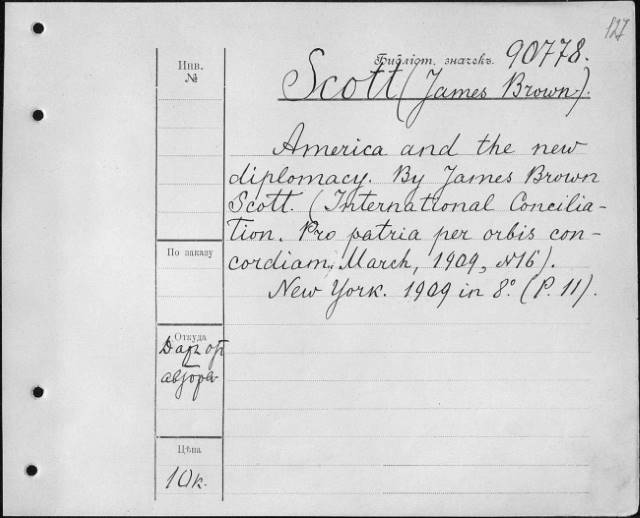 127
Библіот. значекъ. 90778.
Инв.
№
Scott (James Brown).
America and the new
diplomacy. By James Brown
Scott. (International Concilia-
tion. Pro patria per orbis con-
cordiam, March, 1909, №16).
New York. 1909 in 8º. (P. 11).
По заказу
Откуда
автора
Цѣна
10к.